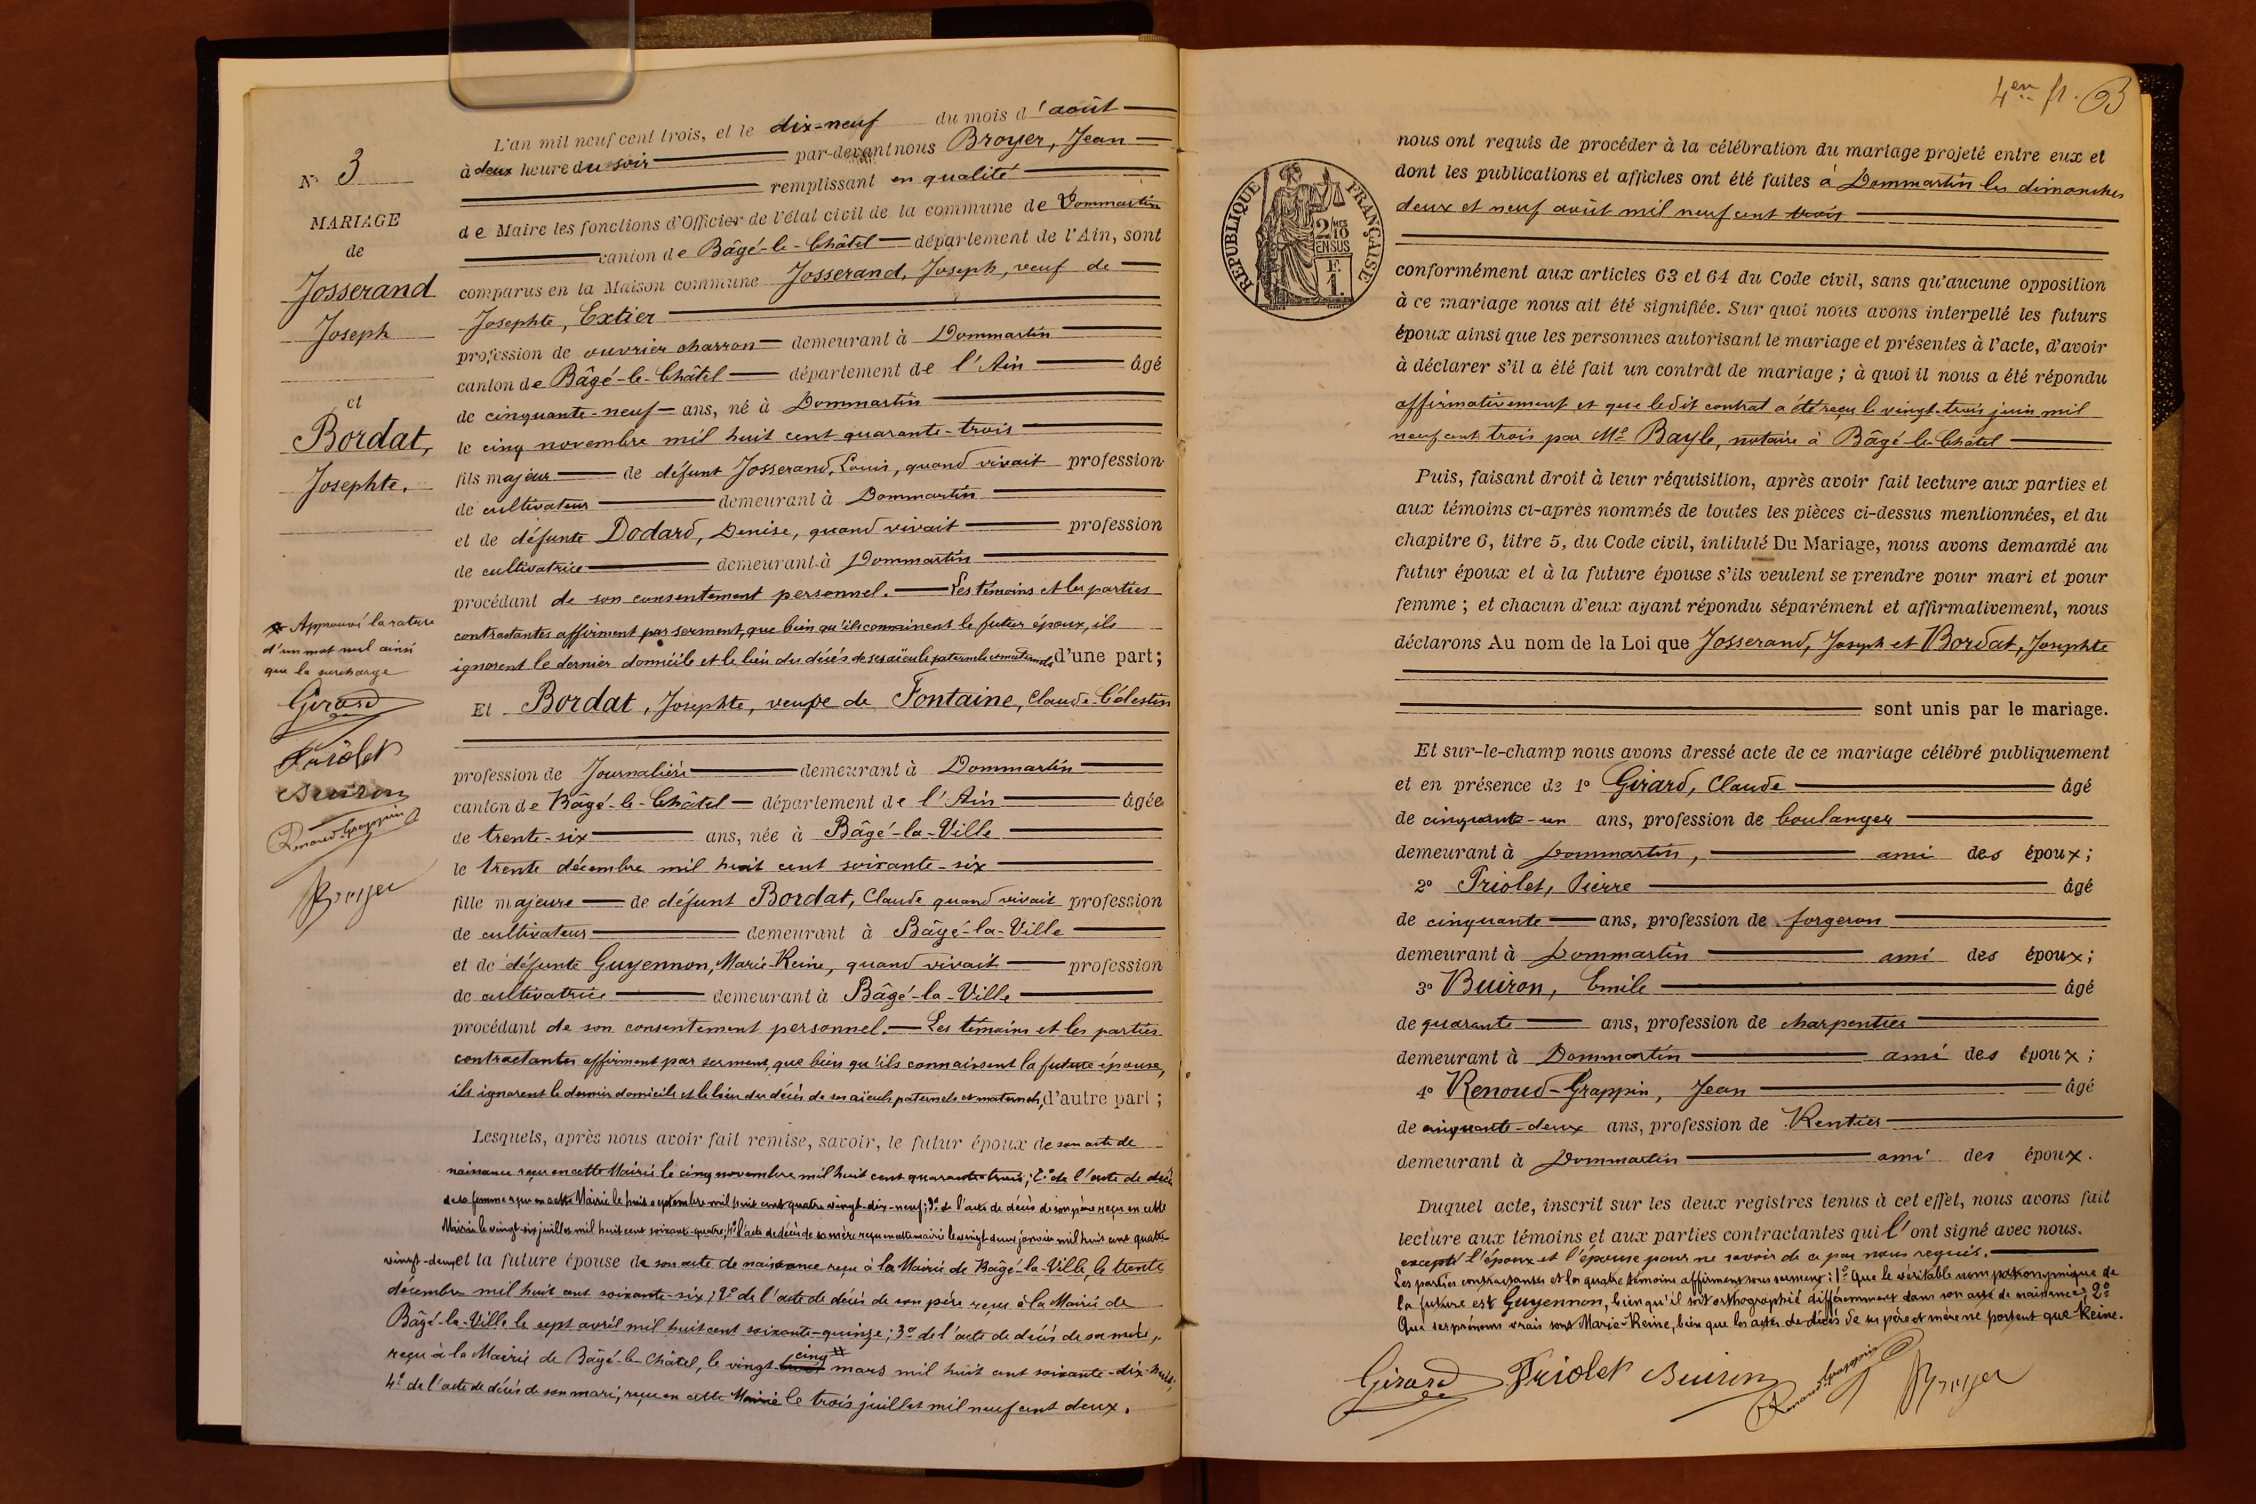 N° 3
MARIAGE
de
Josserand
Joseph
et
Bordat,
Josephte.
Approuvé la rature
d'un mot nul ainsi
que la surcharge
Girard
Triolet
Buiron
Renoud-Grappin
Broyer
L'an mil neuf cent trois, et le dix-neuf du mois d'août
à deux heure du soir par-devant nous Broyer, Jean
remplissant en qualité
de Maire les fonctions d'Officier de l'état civil de la commune de Dommartin
canton de Bâgé-le-Châtel département de l'Ain, sont
comparus en la Maison commune Josserand, Joseph, veuf de
Josephte, Extier
profession de ouvrier charron demeurant à Dommartin
canton de Bâgé-le-Châtel département de l'Ain âgé
de cinquante-neuf ans, né à Dommartin
le cinq novembre mil huit cent quarante-trois
fils majeur de défunt Josserand, Louis, quand vivait profession
de cultivateur demeurant à Dommartin
et de défunte Dodard, Denise, quand vivait profession
de cultivatrice demeurant à Dommartin
procédant de son consentement personnel. Les témoins et les parties
contractantes affirment par serment, que bien qu'ils connaissent le futur époux, ils
ignorent le dernier domicile et le lieu des décès de ses aïeuls paternels et maternels d'une part;
Et Bordat, Josephte, veuve de Fontaine, Claude-Célestin
profession de Journalière demeurant à Dommartin
canton de Bâgé-le-Châtel département de l'Ain âgée
de trente-six ans, née à Bâgé-la-Ville
le trente décembre mil huit cent soixante-six
fille majeure de défunt Bordat, Claude quand vivait profession
de cultivateur demeurant à Bâgé-la-Ville
et de défunte Guyennon, Marie-Reine, quand vivait profession
de cultivatrice demeurant à Bâgé-la-Ville
procédant de son consentement personnel. Les témoins et les parties
contractantes affirment par serment, que bien qu'ils connaissent la future épouse,
ils ignorent le dernier domicile et le lieu des décès de ses aïeuls paternels et maternels, d'autre part;
Lesquels, après nous avoir fait remise, savoir, le futur époux de son acte de
naissance reçu en cette Mairie le cinq novembre mil huit cent quarante-trois; 2° de l'acte de décès
de sa femme reçu en cette Mairie le huit septembre mil huit cent quatre-vingt-dix-neuf; 3° de l'acte de décès de son père reçu en cette
Mairie le vingt-six juillet mil huit cent soixante-quatre; 4° l'acte de décès de sa mère reçu en cette mairie le vingt-deux janvier mil huit cent quatre
vingt-deux et la future épouse de son acte de naissance reçu à la Mairie de Bâgé-la-Ville, le trente
décembre mil huit cent soixante-six; 2° de l'acte de décès de son père reçu à la Mairie de
Bâgé-la-Ville le sept avril mil huit cent soixante-quinze; 3° de l'acte de décès de sa mère,
reçu à la Mairie de Bâgé-le-Châtel, le vingt-cinq mars mil huit cent soixante-dix-huit;
4° de l'acte de décès de son mari, reçu en cette Mairie le trois juillet mil neuf cent deux.
4en ft. 63
RÉPUBLIQUE FRANÇAISE
2/10 EN SUS
F.
1.
nous ont requis de procéder à la célébration du mariage projeté entre eux et
dont les publications et affiches ont été faites à Dommartin les dimanches
deux et neuf août mil neuf cent trois
conformément aux articles 63 et 64 du Code civil, sans qu'aucune opposition
à ce mariage nous ait été signifiée. Sur quoi nous avons interpellé les futurs
époux ainsi que les personnes autorisant le mariage et présentes à l'acte, d'avoir
à déclarer s'il a été fait un contrat de mariage; à quoi il nous a été répondu
affirmativement et que ledit contrat a été reçu le vingt-trois juin mil
neuf cent trois par Me Bayle, notaire à Bâgé-le-Châtel
Puis, faisant droit à leur réquisition, après avoir fait lecture aux parties et
aux témoins ci-après nommés de toutes les pièces ci-dessus mentionnées, et du
chapitre 6, titre 5, du Code civil, intitulé Du Mariage, nous avons demandé au
futur époux et à la future épouse s'ils veulent se prendre pour mari et pour
femme; et chacun d'eux ayant répondu séparément et affirmativement, nous
déclarons Au nom de la Loi que Josserand, Joseph et Bordat, Josephte
sont unis par le mariage.
Et sur-le-champ nous avons dressé acte de ce mariage célébré publiquement
et en présence de 1° Girard, Claude âgé
de cinquante-un ans, profession de boulanger
demeurant à Dommartin, ami des époux;
2° Triolet, Pierre âgé
de cinquante ans, profession de forgeron
demeurant à Dommartin ami des époux;
3° Buiron, Emile âgé
de quarante ans, profession de charpentier
demeurant à Dommartin ami des époux;
4° Renoud-Grappin, Jean âgé
de cinquante-deux ans, profession de Rentier
demeurant à Dommartin ami des époux.
Duquel acte, inscrit sur les deux registres tenus à cet effet, nous avons fait
lecture aux témoins et aux parties contractantes qui l'ont signé avec nous.
excepté l'époux et l'épouse pour ne savoir de ce par nous requis.
Les parties contractantes et les quatre témoins affirment sous serment: 1° Que le véritable nom patronymique de
la future est Guyennon, bien qu'il soit orthographié différemment dans son acte de naissance; 2°
Que ses prénoms vrais sont Marie-Reine, bien que les actes de décès de ses père et mère ne portent que Reine.
Girard Triolet Buiron Renoud-Grappin Broyer